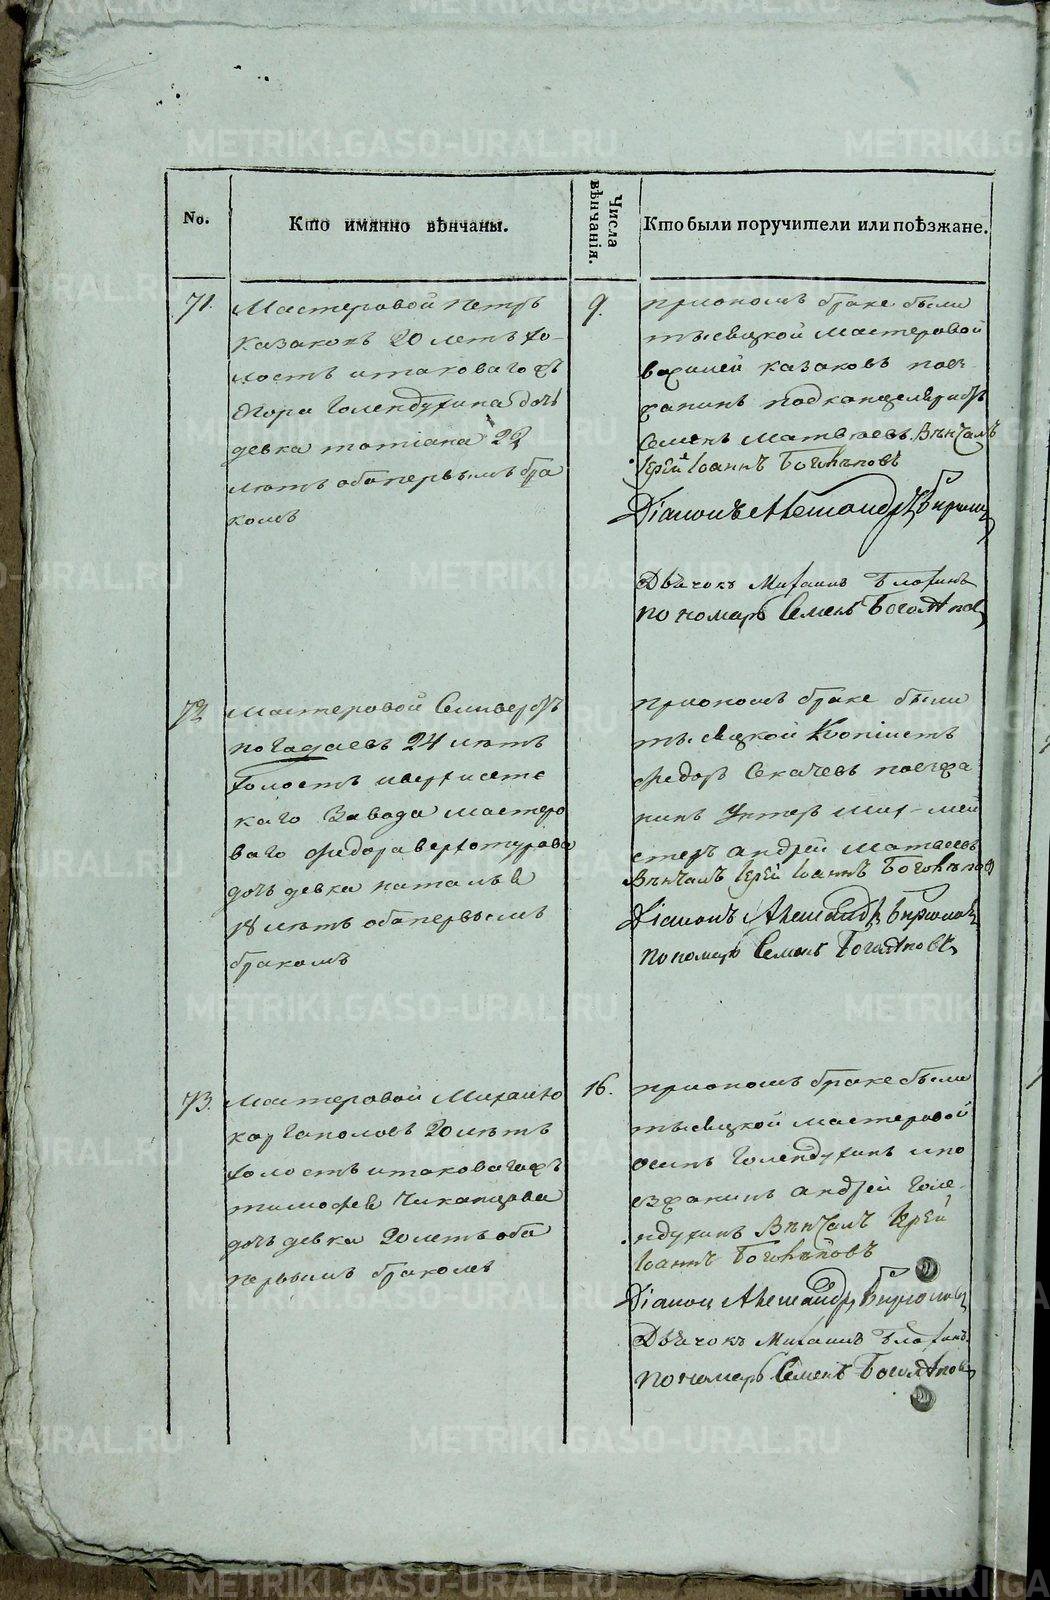 No.
Кто имянно вѣнчаны.
Числа вѣнчанія.
Кто были поручители или поѣзжане.
71.
Мастеровой Петръ
казаковъ 20 летъ хо-
лостъ итаковагожъ
Егора Голендухина дочь
девка татиана 22
летъ оба первымъ бра
комъ
9.
приономъ браке были
тысяцкой мастеровой
василей казаковъ поез-
жанинъ подканцеляристъ
Семенъ Матвеевъ. Вѣнчалъ
Іерей Іоаннъ
Діаконъ Александръ Бирюковъ
Дьячокъ Михаилъ
пономарь Семенъ
72
Мастеровой Селиверстъ
погадаевъ 24 летъ
холостъ иверхисетс
каго Завода мастеро
ваго федора верхотурова
дочь девка наталья
18 летъ оба первымъ
бракомъ
приономъ браке были
тысяцкой Копіистъ
федоръ Секачевъ поезжа
нинъ Унтеръ Шихт-мей
стеръ андрей матвеевъ
Вѣнчалъ Іерей Іоаннъ
Діаконъ Александръ Бирюковъ
пономарь Семенъ
73.
Мастеровой Михайло
каргаполовъ 20 летъ
холостъ итаковагожъ
тимофея Чиканцова
дочь девка 20 летъ оба
первымъ бракомъ
16.
приономъ браке были
тысяцкой мастеровой
осипъ Голендухинъ ипо
езжанинъ андрей Голе-
ндухинъ Вѣнчалъ Іерей
Іоаннъ
Діаконъ Александръ Бирюковъ
Дьячокъ Михаилъ
пономарь Семенъ
METRIKI.GASO-URAL.RU